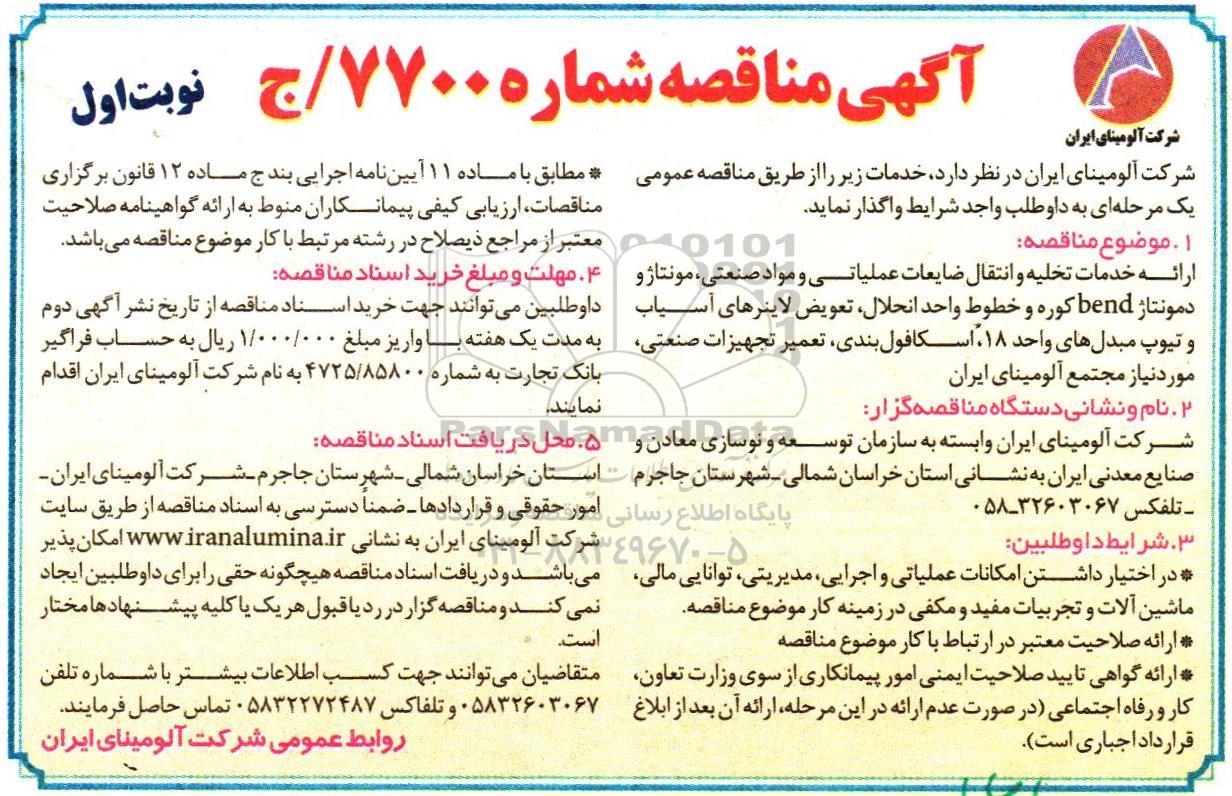 آگهی مناقصه شماره ۷۷۰۰/ج
نوبت اول
شرکت آلومینای ایران
شرکت آلومینای ایران در نظر دارد، خدمات زیر را از طریق مناقصه عمومی
یک مرحله‌ای به داوطلب واجد شرایط واگذار نماید.
۱. موضوع مناقصه:
ارائه خدمات تخلیه و انتقال ضایعات عملیاتی و مواد صنعتی، مونتاژ و
دمونتاژ bend کوره و خطوط واحد انحلال، تعویض لاینرهای آسیاب
و تیوپ مبدل‌های واحد ۱۸، اسکافول‌بندی، تعمیر تجهیزات صنعتی،
موردنیاز مجتمع آلومینای ایران
۲. نام و نشانی دستگاه مناقصه‌گزار:
شرکت آلومینای ایران وابسته به سازمان توسعه و نوسازی معادن و
صنایع معدنی ایران به نشانی استان خراسان شمالی ـ شهرستان جاجرم
ـ تلفکس ۳۲۶۰۳۰۶۷ـ۰۵۸
۳. شرایط داوطلبین:
* در اختیار داشتن امکانات عملیاتی و اجرایی، مدیریتی، توانایی مالی،
ماشین آلات و تجربیات مفید و مکفی در زمینه کار موضوع مناقصه.
* ارائه صلاحیت معتبر در ارتباط با کار موضوع مناقصه
* ارائه گواهی تایید صلاحیت ایمنی امور پیمانکاری از سوی وزارت تعاون،
کار و رفاه اجتماعی (در صورت عدم ارائه در این مرحله، ارائه آن بعد از ابلاغ
قرارداد اجباری است).
* مطابق با ماده ۱۱ آیین‌نامه اجرایی بند ج ماده ۱۲ قانون برگزاری
مناقصات، ارزیابی کیفی پیمانکاران منوط به ارائه گواهینامه صلاحیت
معتبر از مراجع ذیصلاح در رشته مرتبط با کار موضوع مناقصه می‌باشد.
۴. مهلت و مبلغ خرید اسناد مناقصه:
داوطلبین می‌توانند جهت خرید اسناد مناقصه از تاریخ نشر آگهی دوم
به مدت یک هفته با واریز مبلغ ۱/۰۰۰/۰۰۰ ریال به حساب فراگیر
بانک تجارت به شماره ۴۷۲۵/۸۵۸۰۰ به نام شرکت آلومینای ایران اقدام
نمایند.
۵. محل دریافت اسناد مناقصه:
استان خراسان شمالی ـ شهرستان جاجرم ـ شرکت آلومینای ایران ـ
امور حقوقی و قراردادها ـ ضمناً دسترسی به اسناد مناقصه از طریق سایت
شرکت آلومینای ایران به نشانی www.iranalumina.ir امکان‌پذیر
می‌باشد و دریافت اسناد مناقصه هیچگونه حقی را برای داوطلبین ایجاد
نمی‌کند و مناقصه‌گزار در رد یا قبول هر یک یا کلیه پیشنهادها مختار
است.
متقاضیان می‌توانند جهت کسب اطلاعات بیشتر با شماره تلفن
۰۵۸۳۲۶۰۳۰۶۷ و تلفاکس ۰۵۸۳۲۲۷۲۴۸۷ تماس حاصل فرمایند.
روابط عمومی شرکت آلومینای ایران
ParsNamadData
پایگاه اطلاع رسانی
۰۲۱-۸۸۳۴۹۶۷۰-۵